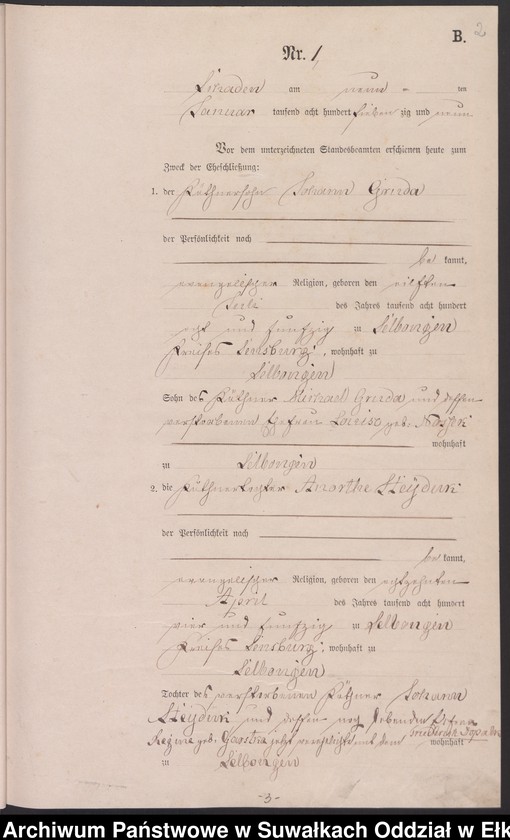 B. 2
Nr. 1
am neun ten
Januar tausend acht hundert sieben zig und neun
Vor dem unterzeichneten Standesbeamten erschienen heute zum
Zweck der Eheschließung:
1. der Käthnersohn Johann Gruda
der Persönlichkeit nach
be kannt,
evangelischer Religion, geboren den eilften
Juli des Jahres tausend acht hundert
acht und funfzig zu Selbongen
Kreises Sensburg, wohnhaft zu
Selbongen
Sohn des Käthner Michael Gruda und dessen
verstorbenen Ehefrau Louise geb.
wohnhaft
zu Selbongen
2. die Käthnertochter Steyduri
der Persönlichkeit nach
be kannt,
evangelischer Religion, geboren den achtzehnten
April des Jahres tausend acht hundert
vier und funfzig zu Selbongen
Kreises Sensburg, wohnhaft zu
Selbongen
Tochter des verstorbenen Käthner Johann
Steyduri und dessen noch lebenden Ehefrau
Regine geb. jetzt verehelichte mit dem Friedrich wohnhaft
zu Selbongen
-3-
Archiwum Państwowe w Suwałkach Oddział w Ełk